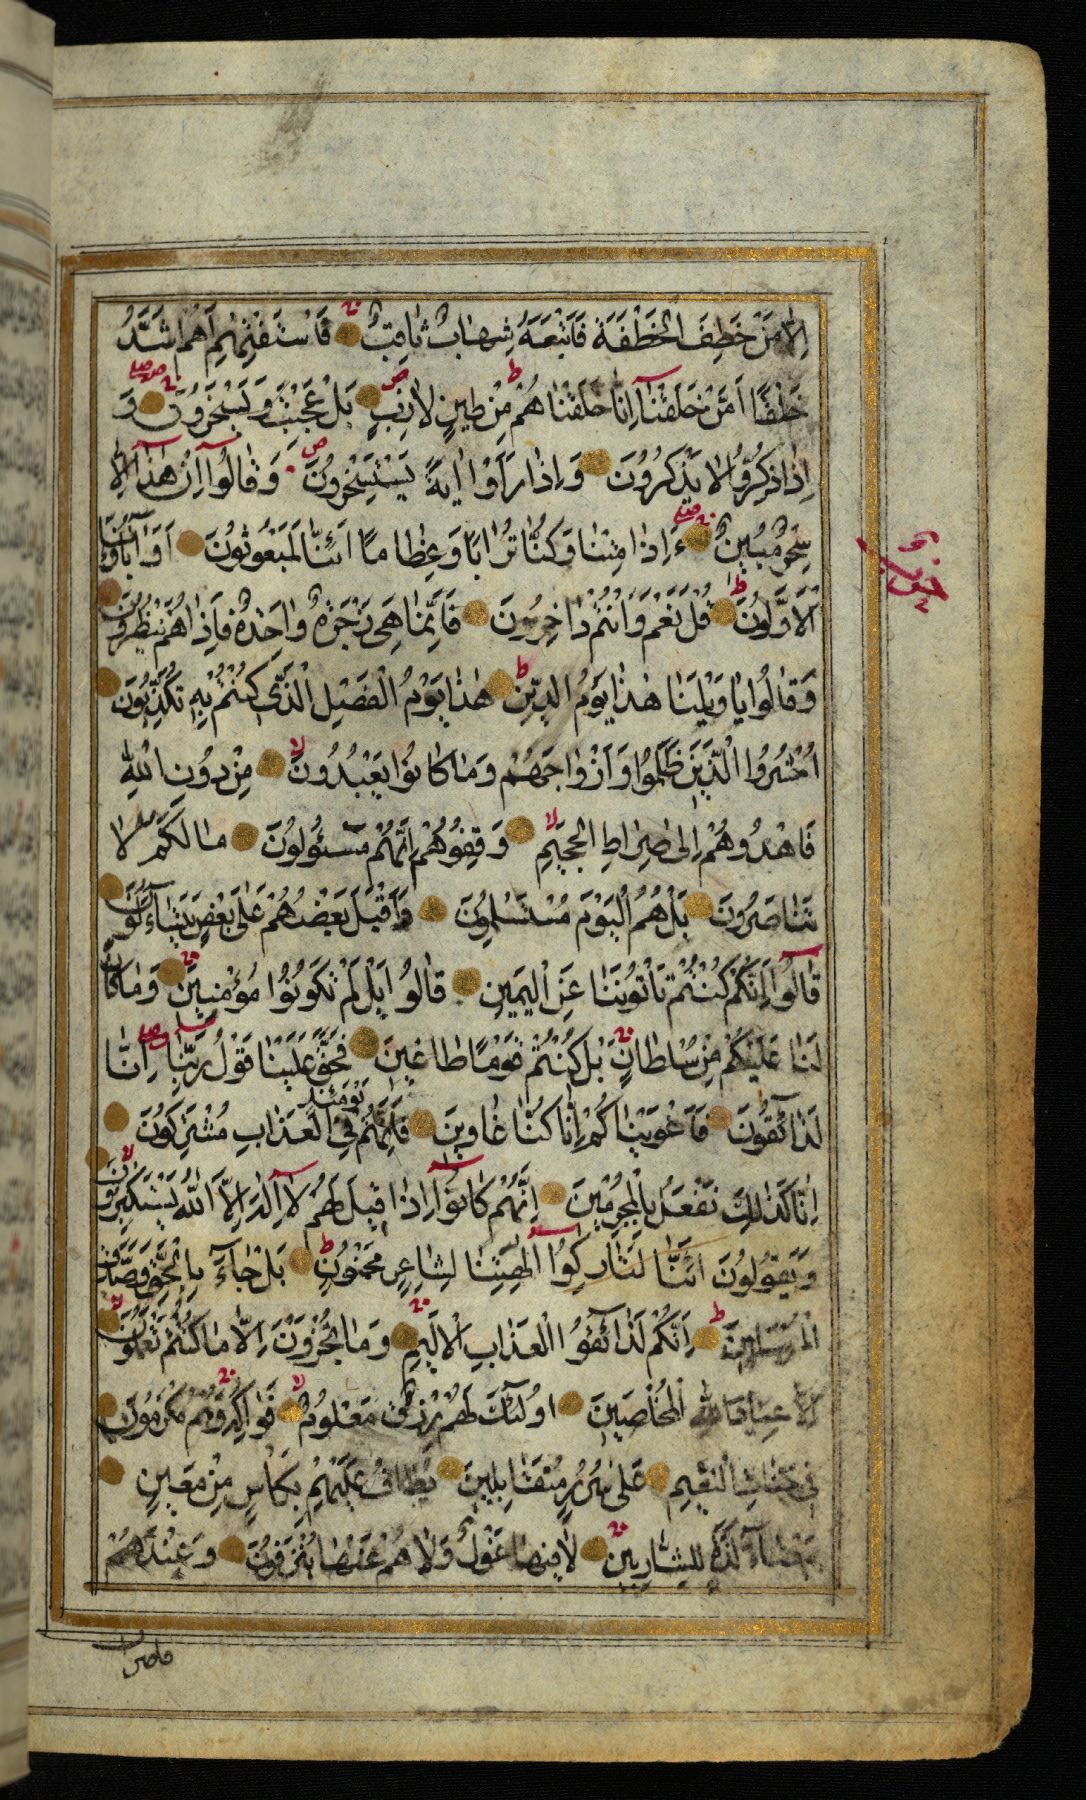 اِلَّا مَنْ خَطِفَ الْخَطْفَةَ فَاَتْبَعَهُ شِهَابٌ ثَاقِبٌ فَاسْتَفْتِهِمْ اَهُمْ اَشَدُّ
خَلْقًا اَمْ مَنْ خَلَقْنَا اِنَّا خَلَقْنَاهُمْ مِنْ طِينٍ لَازِبٍ بَلْ عَجِبْتَ وَيَسْخَرُونَ وَ
اِذَا ذُكِّرُوا لَا يَذْكُرُونَ وَاِذَا رَاَوْا اٰيَةً يَسْتَسْخِرُونَ وَقَالُوا اِنْ هٰذَا اِلَّا
سِحْرٌ مُبِينٌ ءَاِذَا مِتْنَا وَكُنَّا تُرَابًا وَعِظَامًا ائِنَّا لَمَبْعُوثُونَ اَوَاٰبَاؤُنَا
الْاَوَّلُونَ قُلْ نَعَمْ وَاَنْتُمْ دَاخِرُونَ فَاِنَّمَا هِىَ زَجْرَةٌ وَاحِدَةٌ فَاِذَا هُمْ يَنْظُرُونَ
وَقَالُوا يَا وَيْلَنَا هٰذَا يَوْمُ الدِّينِ هٰذَا يَوْمُ الْفَصْلِ الَّذِى كُنْتُمْ بِهِ تُكَذِّبُونَ
اُحْشُرُوا الَّذِينَ ظَلَمُوا وَاَزْوَاجَهُمْ وَمَا كَانُوا يَعْبُدُونَ مِنْ دُونِ اللّٰهِ
فَاهْدُوهُمْ اِلٰى صِرَاطِ الْجَحِيمِ وَقِفُوهُمْ اِنَّهُمْ مَسْئُولُونَ مَا لَكُمْ لَا
تَنَاصَرُونَ بَلْ هُمُ الْيَوْمَ مُسْتَسْلِمُونَ وَاَقْبَلَ بَعْضُهُمْ عَلٰى بَعْضٍ يَتَسَاءَلُونَ
قَالُوا اِنَّكُمْ كُنْتُمْ تَاْتُونَنَا عَنِ الْيَمِينِ قَالُوا بَلْ لَمْ تَكُونُوا مُؤْمِنِينَ وَمَا كَانَ
لَنَا عَلَيْكُمْ مِنْ سُلْطَانٍ بَلْ كُنْتُمْ قَوْمًا طَاغِينَ فَحَقَّ عَلَيْنَا قَوْلُ رَبِّنَا اِنَّا
لَذَائِقُونَ فَاَغْوَيْنَاكُمْ اِنَّا كُنَّا غَاوِينَ فَاِنَّهُمْ يَوْمَئِذٍ فِى الْعَذَابِ مُشْتَرِكُونَ
اِنَّا كَذٰلِكَ نَفْعَلُ بِالْمُجْرِمِينَ اِنَّهُمْ كَانُوا اِذَا قِيلَ لَهُمْ لَا اِلٰهَ اِلَّا اللّٰهُ يَسْتَكْبِرُونَ
وَيَقُولُونَ ائِنَّا لَتَارِكُوا اٰلِهَتِنَا لِشَاعِرٍ مَجْنُونٍ بَلْ جَاءَ بِالْحَقِّ وَصَدَّقَ
الْمُرْسَلِينَ اِنَّكُمْ لَذَائِقُوا الْعَذَابِ الْاَلِيمِ وَمَا تُجْزَوْنَ اِلَّا مَا كُنْتُمْ تَعْمَلُونَ
اِلَّا عِبَادَ اللّٰهِ الْمُخْلَصِينَ اُولٰئِكَ لَهُمْ رِزْقٌ مَعْلُومٌ فَوَاكِهُ وَهُمْ مُكْرَمُونَ
فِى جَنَّاتِ النَّعِيمِ عَلٰى سُرُرٍ مُتَقَابِلِينَ يُطَافُ عَلَيْهِمْ بِكَاْسٍ مِنْ مَعِينٍ
بَيْضَاءَ لَذَّةٍ لِلشَّارِبِينَ لَا فِيهَا غَوْلٌ وَلَا هُمْ عَنْهَا يُنْزَفُونَ وَعِنْدَهُمْ
قاصرات